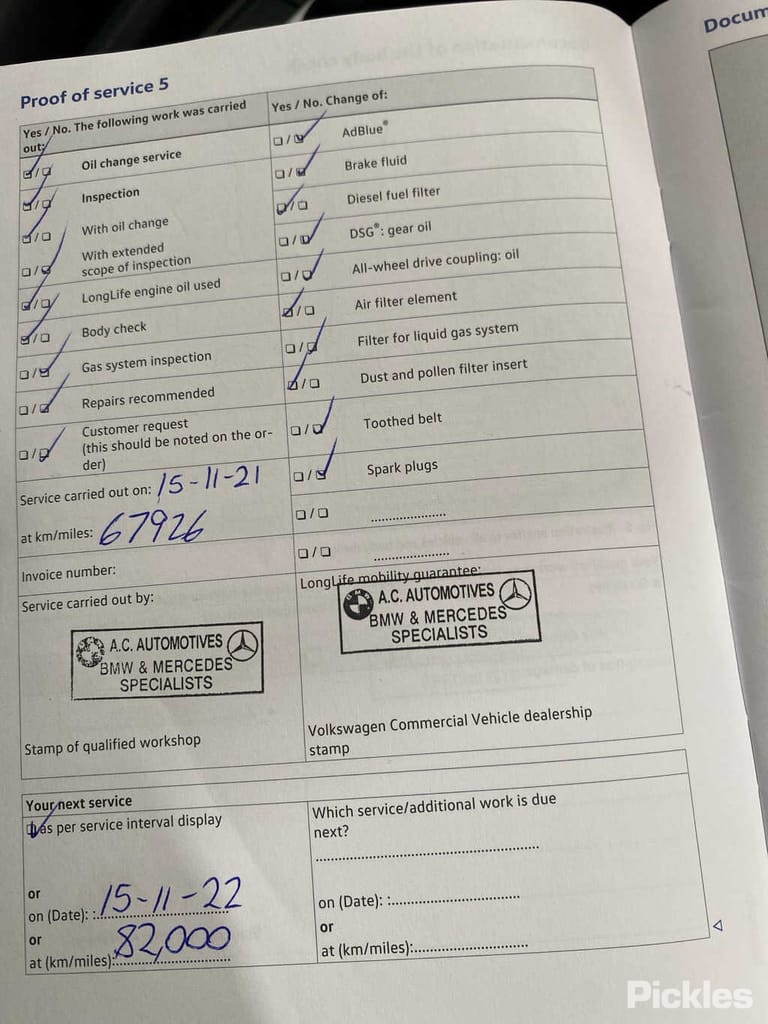 Docum
Proof of service 5
Yes / No. The following work was carried
out:
Oil change service
Inspection
With oil change
With extended
scope of inspection
LongLife engine oil used
Body check
Gas system inspection
Repairs recommended
Customer request
(this should be noted on the or-
der)
Service carried out on: 15-11-21
at km/miles: 67926
Invoice number:
Service carried out by:
A.C. AUTOMOTIVES
BMW & MERCEDES
SPECIALISTS
Stamp of qualified workshop
Yes / No. Change of:
AdBlue®
Brake fluid
Diesel fuel filter
DSG®: gear oil
All-wheel drive coupling: oil
Air filter element
Filter for liquid gas system
Dust and pollen filter insert
Toothed belt
Spark plugs
LongLife mobility guarantee:
BMW
A.C. AUTOMOTIVES
BMW & MERCEDES
SPECIALISTS
Volkswagen Commercial Vehicle dealership
stamp
Your next service
as per service interval display
or
on (Date): :15-11-22
or
at (km/miles): 82,000
Which service/additional work is due
next?
on (Date): :
or
at (km/miles):
Pickles